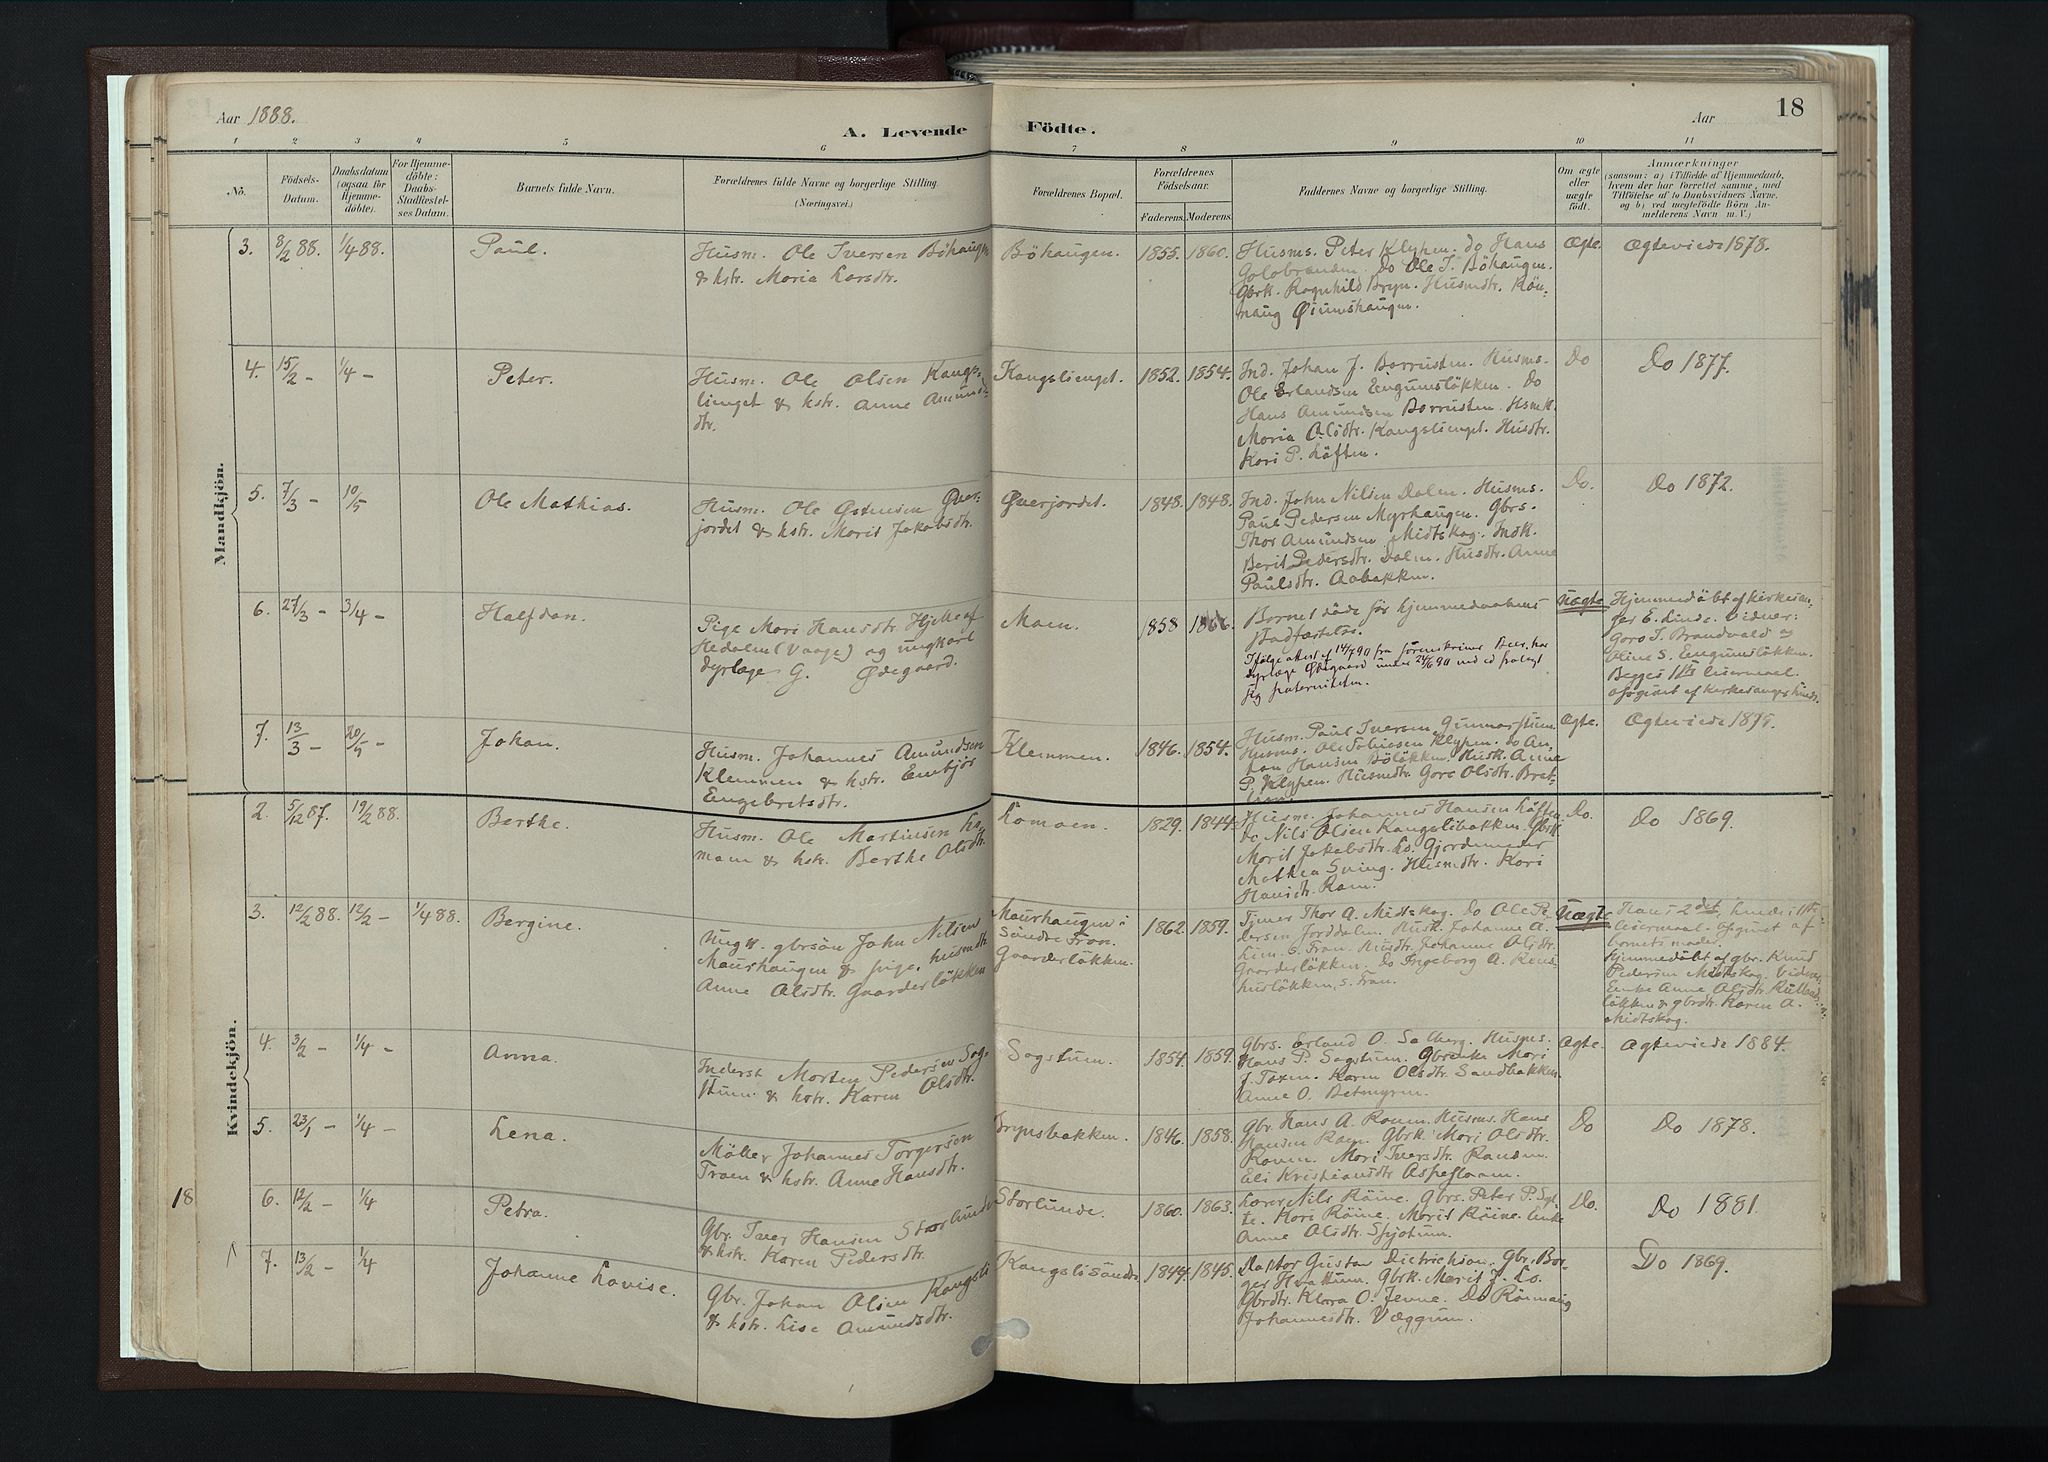 Aar 1888.
A. Levende Födte.
Aar
18
1 2 3 4 5 6 7 8 9 10 11
No.
Födsels-
Datum.
Daabsdatum
(ogsaa for
Hjemme-
döbte).
For Hjemme-
döbte:
Daabs-
Stadfæstel-
ses Datum.
Barnets fulde Navn.
Forældrenes fulde Navne og borgerlige Stilling.
(Næringsvei.)
Forældrenes Bopæl.
Forældrenes
Födselsaar.
Faderens. Moderens.
Faddernes Navne og borgerlige Stilling.
Om ægte
eller
uægte
födt.
Anmærkninger
(saasom: a) i Tilfælde af Hjemmedaab,
hvem der har forrettet samme, med
Tilföielse af to Daabsvidners Navne,
og b) ved uægtefödte Börn An-
melderens Navn m. V.)
Mandkjön.
3. 8/2 88. 1/4 88. Paul.
Husm. Ole Iversen Böhaugen
& kstr. Maria Larsdtr.
Böhaugen. 1855. 1860.
Husms. Peter Klypen. do Hans
Golobranden. Do Ole I. Böhaugen.
Gbrk. Ragnhild Bryn. Husmdtr. Rön-
naug Øiumshaugen.
Ægte. Ægteviede 1878.
4. 15/2 - 1/4 - Peter.
Husm. Ole Olsen Kangs-
lienget & kstr. Anne Amunds-
dtr.
Kangslienget. 1852. 1854.
Ind. Johan J. Borrusten. Husms.
Ole Erlandsen Engumsløkken. Do
Hans Amundsen Borrusten. Hsmk.
Maria Olsdtr. Kangslienget. Husdtr.
Kari P. Löften.
Do Do 1877.
5. 7/3 - 10/5 Ole Mathias.
Husm. Ole Østensen Øver-
jordet & kstr. Marit Jakobsdtr.
Øverjordet. 1848. 1848.
Ind. John Nilsen Dalen. Husms.
Paul Pedersen Myrhaugen. Gbrs.
Thor Amundsen Midtskog. Indk.
Berit Pedersdtr. Dalen. Husdtr. Anne
Paulsdtr. Aabakken.
Do. Do 1872.
6. 27/3 - 3/4 - Halfdan.
Pige Mari Hansdtr. Hjelle af
Hedalen (Vaage) og ungkarl
dyrlæge G. Ødegaard.
Moen. 1858 1866.
Barnet døde før hjemmedaabens
stadfæstelse.
Ifølge attest af 14/7 90 fra sorenskriver Beer, har
dyrlæge Ødegaard under 24/6 90 med ed fralagt
sig paterniteten.
Uægte
Hjemmedöbt af kirkesan-
ger E. Linde. Vidner:
Goro I. Brandvold og
Oline S. Engumsløkken.
Begges 1ste leiermaal.
opgivet af kirkesanger Linde.
7. 13/3 - 20/5 - Johan.
Husm. Johannes Amundsen
Klemmen & kstr. Embjør
Engebretsdtr.
Klemmen. 1846. 1854.
Husm. Paul Iversen Gunnarstuen
Husms. Ole Tobiesen Klypen. do An-
ton Hansen Böløkken. Husk. Anne
P. Klypen. Husmdtr. Goro Olsdtr. Bret-
Ægte. Ægteviede 1875.
Kvindekjön.
2. 5/12 87. 19/2 88. Berthe.
Husm. Ole Martinsen Lo-
moen & kstr. Berthe Olsdtr.
Lomoen. 1829. 1844.
Husm. Johannes Hansen Löften
do Nils Olsen Kangslibakken. Gbrk.
Marit Jakobsdtr. Lo. Gjordemoder
Mathea Sving. Husmdtr. Kari
Hansdtr. Ram.
Do. Do 1869.
3. 12/2 88. 12/2 - 1/4 88. Bergine.
Ungk. gbrsön John Nilsen
Maurhaugen & pige, husmdtr.
Anne Olsdtr. Gaarderløkken
Maurhaugen i
Söndre Fron.
Gaarderløkken.
1862. 1859.
Tjener Thor A. Midtskog. Do Ole Pe-
dersen Jorddalen. Husk. Johanne A.
Lien. S. Fron. Husdtr. Johanne Olsdtr.
Gaarderløkken. Do Ingeborg A.
husløkken, S. Fron.
Uægte
Hans 2det, hendes 1ste
leiermaal. Opgivet af
barnets moder.
Hjemmedöbt af gbr. Knud
Pedersen Midtskog. Vidner:
Enke Anne Olsdtr.
løkken & gbrdtr. Karen A.
Midtskog.
4. 3/2 - 1/4 - Anna.
Inderst Morten Pedersen Sog-
stuen & kstr. Karen Olsdtr.
Sogstuen. 1854. 1859.
Gbrs. Erland O. Solberg. Husms.
Hans P. Sogstuen. Gbrenke Mari
J. Toxen. Karen Olsdtr. Sandbakken.
Anne O. Betmyren.
Ægte. Ægteviede 1884.
5. 23/1 - 1/4 - Lena.
Möller Johannes Torgersen
Troen & kstr. Anne Hansdtr.
Brynsbakken. 1846. 1858.
Gbr. Hans A. Rouen. Husms. Hans
Hansen Ram. Gbrk. Mari Olsdtr.
Rouen. Mari Iversdtr. Randen.
Eli Kristiansdtr. Aspeslaaen.
Do Do 1878.
18
6. 12/2 - 1/4 Petra.
Gbr. Iver Hansen Storlunde
& kstr. Karen Pedersdtr.
Storlunde. 1860. 1863.
Lærer Nils Röine. Gbrs. Peter P. Syl-
te. Kari Röine. Marit Röine. Enke
Anne Olsdtr. Spjotum.
Do. Do 1881.
7. 13/2 - 1/4 Johanne Lovise.
Gbr. Johan Olsen Kangsli
& kstr. Lise Amundsdtr.
Kangsli söndre 1844. 1845.
Doktor Gustav Dietrichson. Gbr. Bor-
ger Hvattum. Gbrk. Marit J. Lo.
Gbrdtr. Klara O. Fenne. Do Rönnaug
Johannesdtr. Væggum.
Do 1869.